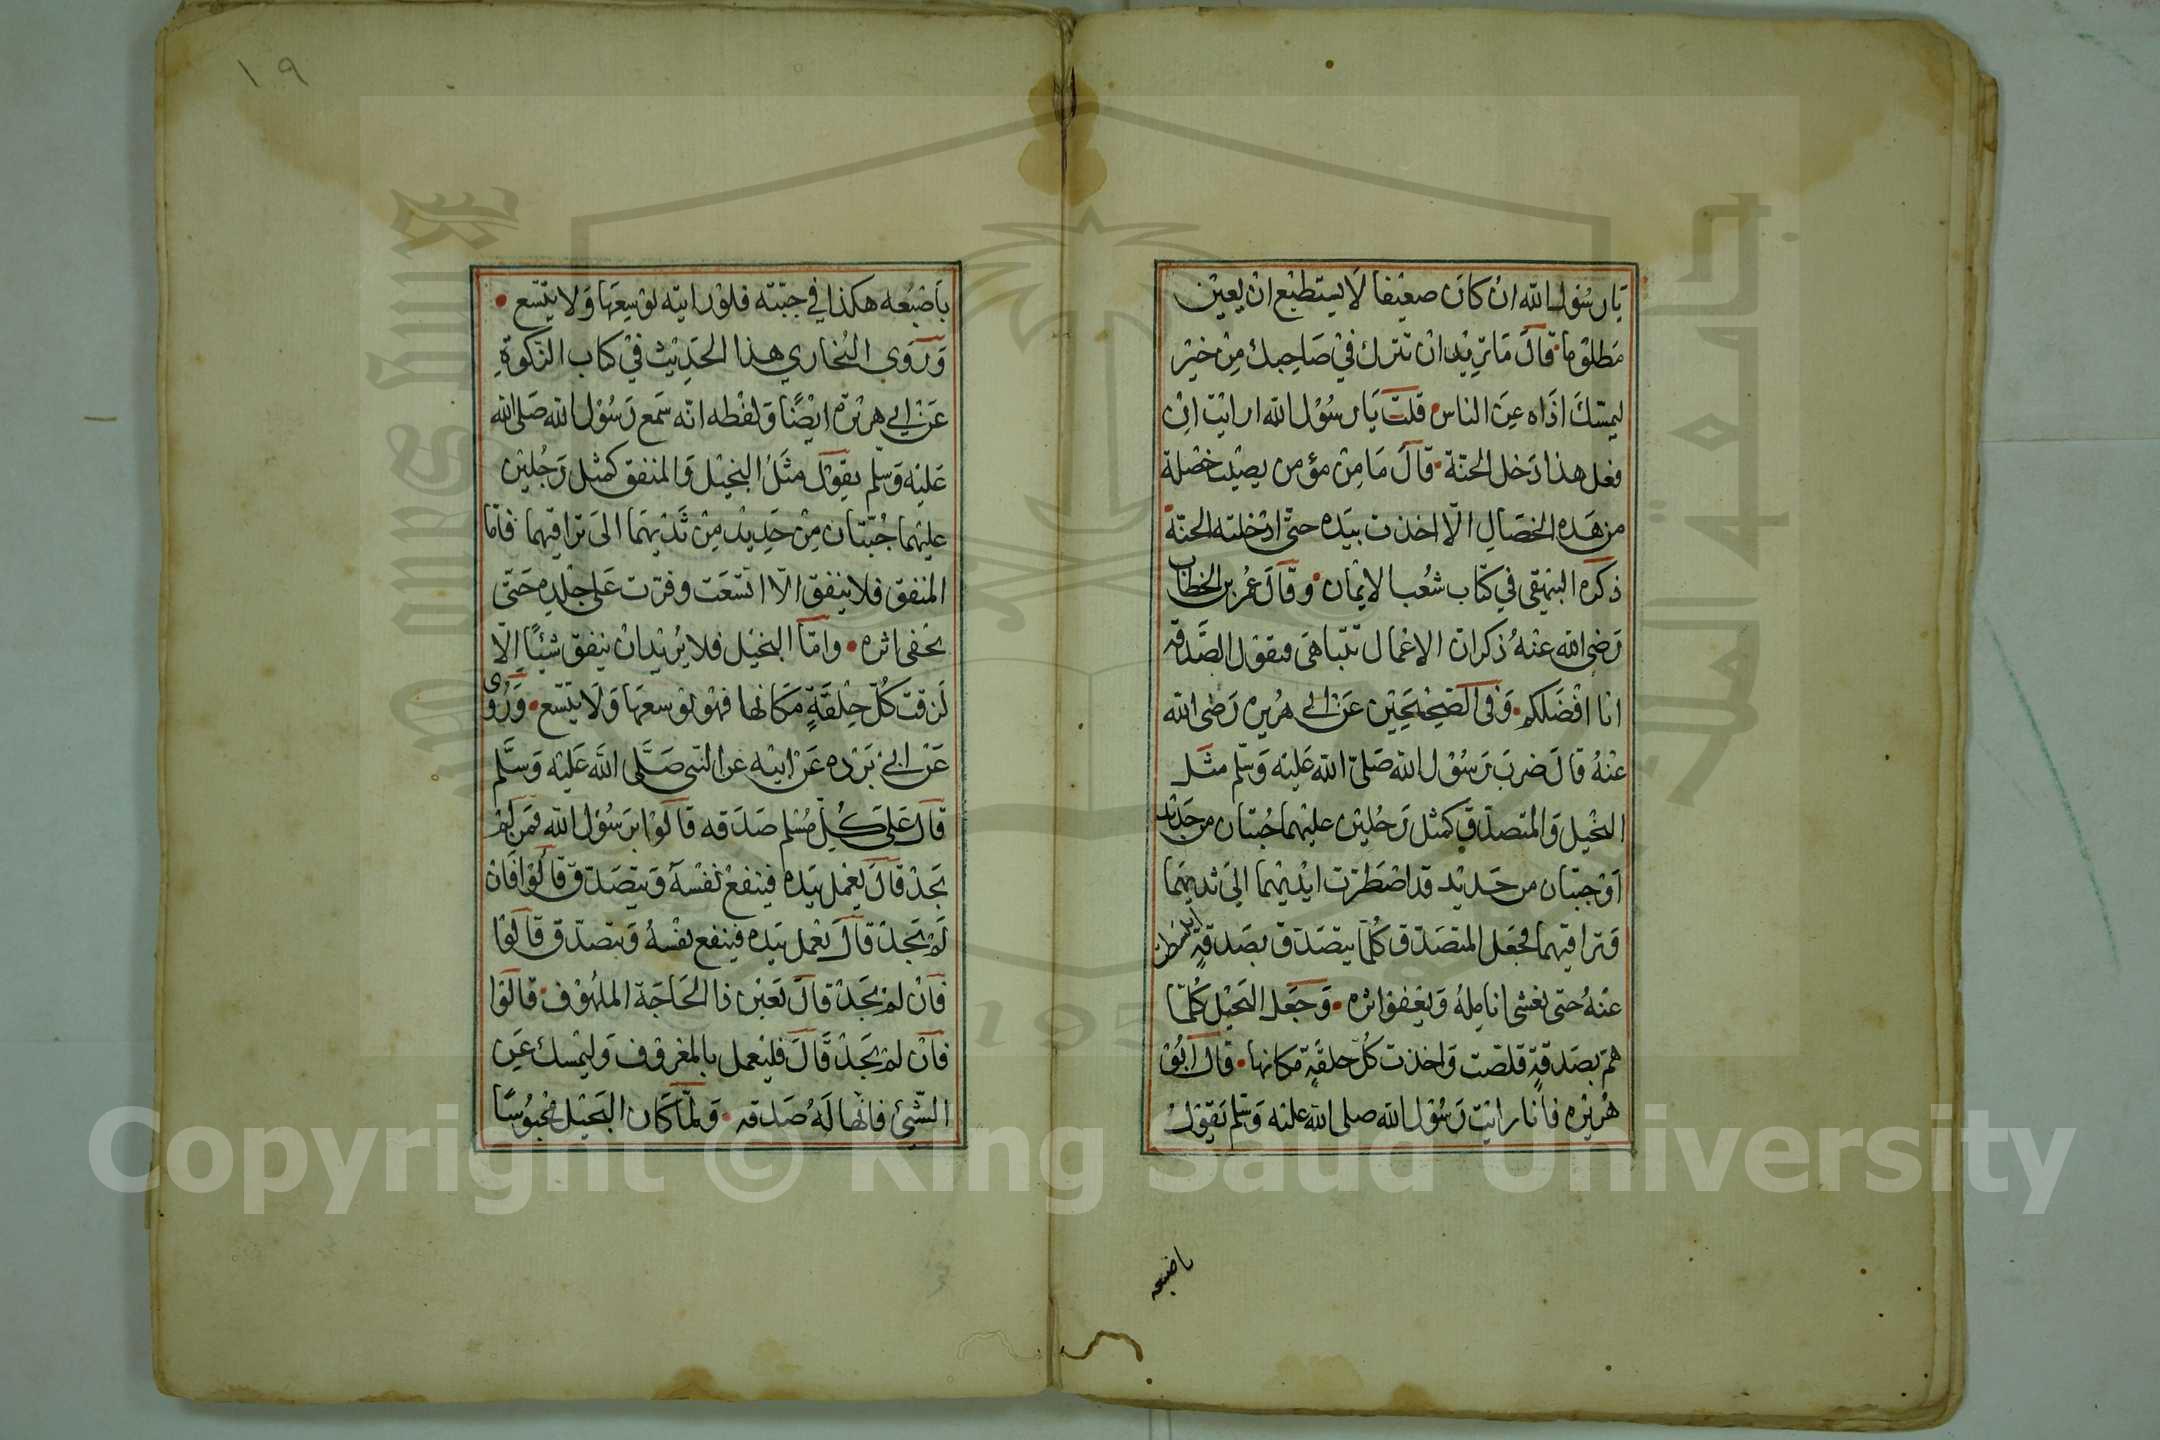 يا رسول الله ان كان ضعيفا لا يستطيع ان يعين
مظلوما قال ما تريد ان تترك في صاحبك من خير
ليمسك اذاه عن الناس قلت يا رسول الله ارايت ان
فعل هذا دخل الجنة قال ما من مؤمن يصيب خصلة
من هذه الخصال الا اخذت بيده حتى ادخلته الجنة
ذكره البيهقي في كتاب شعب الايمان وقال عمر بن الخطاب
رضى الله عنه ذكر ان الاعمال تتباهى فتقول الصدقه
انا افضلكم وفى الصحيحين عن ابي هريره رضى الله
عنه قال ضرب رسول الله صلى الله عليه وسلم مثل
البخيل والمتصدق كمثل رجلين عليهما جبتان من حديد
او جبتان من حديد قد اضطرت ايديهما الى ثديهما
وتراقيهما فجعل المتصدق كلما يتصدق بصدقة انبسطت
عنه حتى تغشى انامله ويعفو اثره وجعل البخيل كلما
هم بصدقة قلصت واخذت كل حلقة مكانها قال ابو
هريره فانا رايت رسول الله صلى الله عليه وسلم يقول
باضبعه
١٩
باضبعه هكذا في جبته فلو رايته يوسعها ولا يتسع
وروى البخاري هذا الحديث في كتاب الزكوة
عن ابي هريره ايضا ولفظه انه سمع رسول الله صلى الله
عليه وسلم يقول مثل البخيل والمنفق كمثل رجلين
عليهما جبتان من حديد من ثديهما الى تراقيهما فاما
المنفق فلا ينفق الا اتسعت وفرت على جلده حتى
يخفى اثره واما البخيل فلا يريد ان ينفق شيئا الا
لزقت كل حلقة مكانها فهو يوسعها ولا يتسع وروى
عن ابي برده عن ابيه عن النبي صلى الله عليه وسلم
قال على كل مسلم صدقه قالوا يرسول الله فمن لم
يجد قال يعمل بيده فينفع نفسه ويتصدق قالوا فان
لم يجد قال يعمل بيده فينفع نفسه ويتصدق قالوا
فان لم يجد قال يعين ذا الحاجة الملهوف قالوا
فان لم يجد قال فليعمل بالمعروف وليمسك عن
الشئ فانها له صدقه ولما كان البخيل محبوسا
Copyright © King Saud University
1957